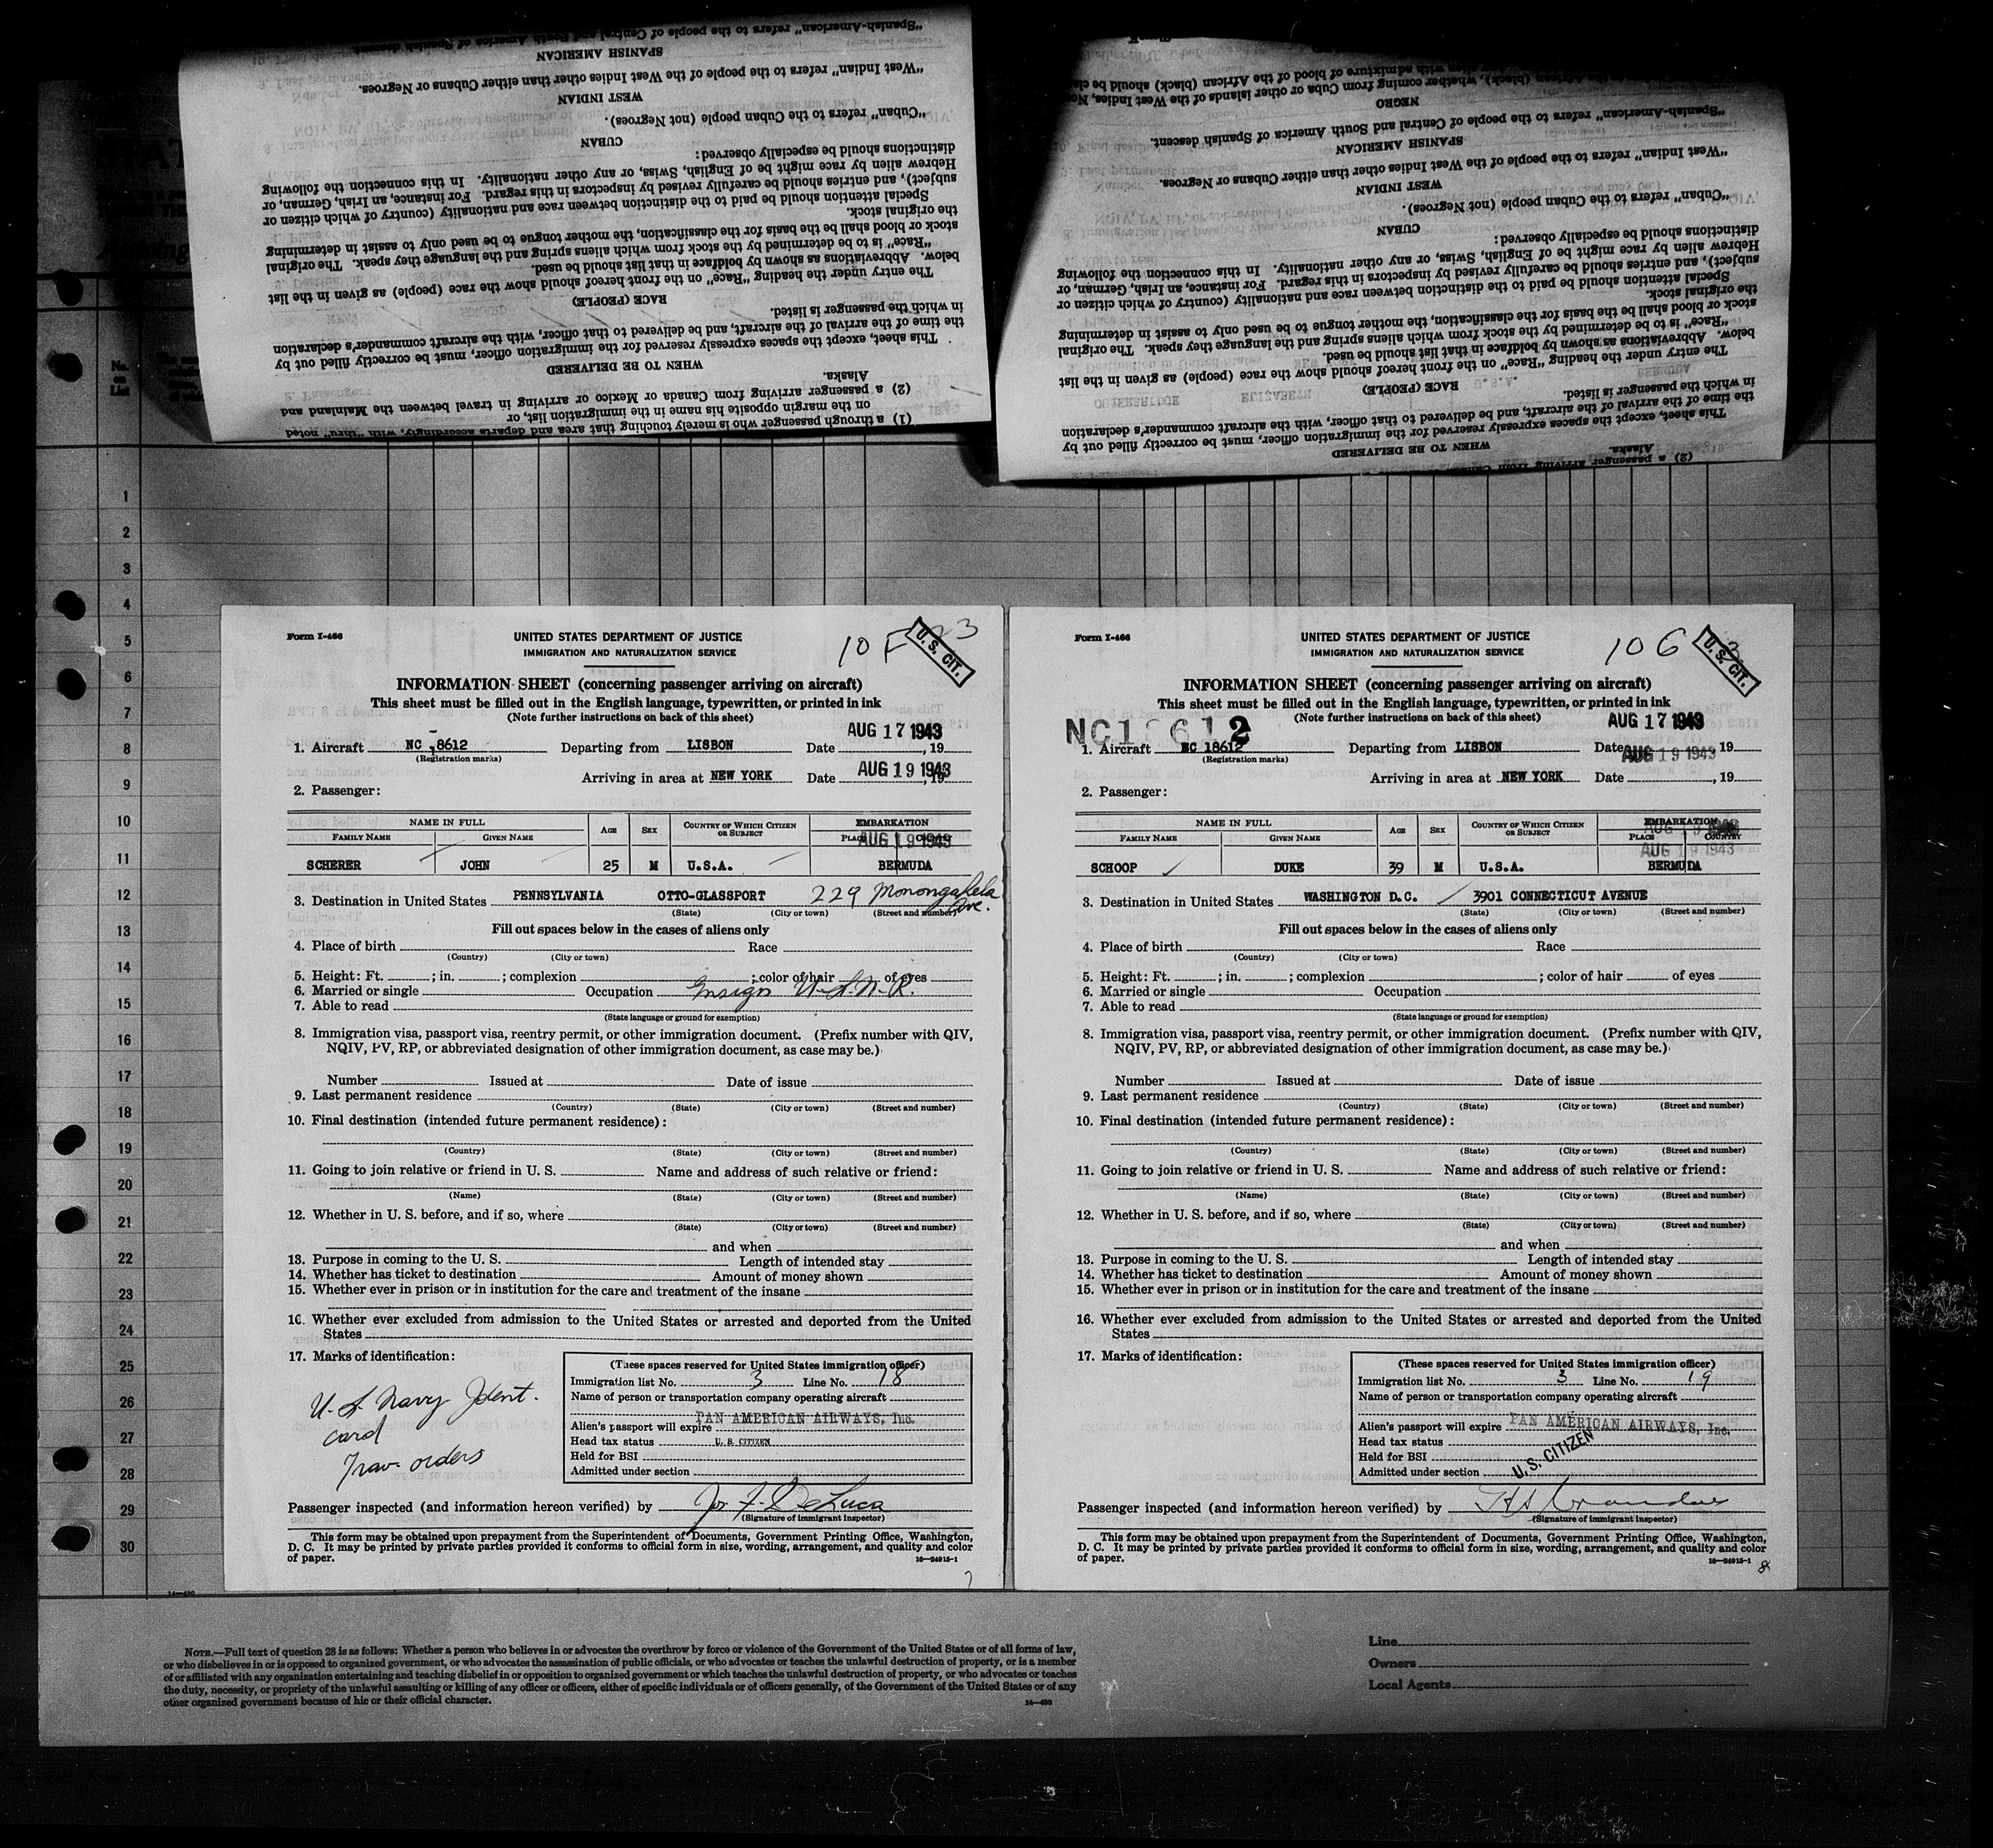 "Spanish-American" refers to the people of Central and South America of Spanish descent.
SPANISH AMERICAN
"West Indian" refers to the people of the West Indies other than either Cubans or Negroes.
WEST INDIAN
"Cuban" refers to the Cuban people (not Negroes).
CUBAN
distinctions should be especially observed:
Hebrew alien by race might be of English, Swiss, or any other nationality. In this connection the following
subject), and entries should be carefully revised by inspectors in this regard. For instance, an Irish, German, or
Special attention should be paid to the distinction between race and nationality (country of which citizen or
the original stock.
stock or blood shall be the basis for the classification, the mother tongue to be used only to assist in determining
"Race" is to be determined by the stock from which aliens spring and the language they speak. The original
below. Abbreviations as shown by boldface in that list should be used.
The entry under the heading "Race" on the front hereof should show the race (people) as given in the list
RACE (PEOPLE)
in which the passenger is listed.
the time of the arrival of the aircraft, and be delivered to that officer, with the aircraft commander's declaration
This sheet, except the spaces expressly reserved for the immigration officer, must be correctly filled out by
WHEN TO BE DELIVERED
Alaska.
(2) a passenger arriving from Canada or Mexico or arriving in travel between the Mainland and
on the margin opposite his name in the immigration list, or
(1) a through passenger who is merely touching that area and departs accordingly, with "thru" noted
admixture of blood of the African (black) should be
(black), whether coming from Cuba or other islands of the West Indies,
NEGRO
"Spanish-American" refers to the people of Central and South America of Spanish descent.
SPANISH AMERICAN
"West Indian" refers to the people of the West Indies other than either Cubans or Negroes.
WEST INDIAN
"Cuban" refers to the Cuban people (not Negroes).
CUBAN
distinctions should be especially observed:
Hebrew alien by race might be of English, Swiss, or any other nationality. In this connection the following
subject), and entries should be carefully revised by inspectors in this regard. For instance, an Irish, German, or
Special attention should be paid to the distinction between race and nationality (country of which citizen or
the original stock.
stock or blood shall be the basis for the classification, the mother tongue to be used only to assist in determining
"Race" is to be determined by the stock from which aliens spring and the language they speak. The original
below. Abbreviations as shown by boldface in that list should be used.
The entry under the heading "Race" on the front hereof should show the race (people) as given in the list
RACE (PEOPLE)
in which the passenger is listed.
the time of the arrival of the aircraft, and be delivered to that officer, with the aircraft commander's declaration
This sheet, except the spaces expressly reserved for the immigration officer, must be correctly filled out by
WHEN TO BE DELIVERED
Alaska.
No. on List
1
2
3
4
5
6
7
8
9
10
11
12
13
14
15
16
17
18
19
20
21
22
23
24
25
26
27
28
29
30
Form I-466
UNITED STATES DEPARTMENT OF JUSTICE
IMMIGRATION AND NATURALIZATION SERVICE
10 F 23
U. S. CIT.
INFORMATION SHEET (concerning passenger arriving on aircraft)
This sheet must be filled out in the English language, typewritten, or printed in ink
(Note further instructions on back of this sheet)
AUG 17 1943
1. Aircraft NC 8612 Departing from LISBON Date , 19
(Registration marks)
AUG 19 1943
Arriving in area at NEW YORK Date , 19
2. Passenger:
NAME IN FULL
FAMILY NAME GIVEN NAME AGE SEX COUNTRY OF WHICH CITIZEN OR SUBJECT EMBARKATION
PLACE COUNTRY
AUG 19 1943
SCHERER JOHN 25 M U.S.A. BERMUDA
3. Destination in United States PENNSYLVANIA OTTO-GLASSPORT 229 Monongahela Ave.
(State) (City or town) (Street and number)
Fill out spaces below in the cases of aliens only
4. Place of birth Race
(Country) (City or town)
5. Height: Ft. ; in. ; complexion ; color of hair of eyes
6. Married or single Occupation Ensign U.S.N.R.
7. Able to read
(State language or ground for exemption)
8. Immigration visa, passport visa, reentry permit, or other immigration document. (Prefix number with QIV,
NQIV, PV, RP, or abbreviated designation of other immigration document, as case may be.)
Number Issued at Date of issue
9. Last permanent residence
(Country) (State) (City or town) (Street and number)
10. Final destination (intended future permanent residence):
(Country) (State) (City or town) (Street and number)
11. Going to join relative or friend in U. S. Name and address of such relative or friend:
(Name) (State) (City or town) (Street and number)
12. Whether in U. S. before, and if so, where
(State) (City or town) (Street and number)
and when
13. Purpose in coming to the U. S. Length of intended stay
14. Whether has ticket to destination Amount of money shown
15. Whether ever in prison or in institution for the care and treatment of the insane
16. Whether ever excluded from admission to the United States or arrested and deported from the United
States
17. Marks of identification:
U. S. Navy Ident.
card
Trav. orders
(These spaces reserved for United States immigration officer)
Immigration list No. 3 Line No. 18
Name of person or transportation company operating aircraft
PAN AMERICAN AIRWAYS, Inc.
Alien's passport will expire
Head tax status U. S. CITIZEN
Held for BSI
Admitted under section
Passenger inspected (and information hereon verified) by Jos. F. DeLuca
(Signature of immigrant inspector)
This form may be obtained upon prepayment from the Superintendent of Documents, Government Printing Office, Washington,
D. C. It may be printed by private parties provided it conforms to official form in size, wording, arrangement, and quality and color
of paper.
16—24915-1
Form I-466
UNITED STATES DEPARTMENT OF JUSTICE
IMMIGRATION AND NATURALIZATION SERVICE
10 G
U. S. CIT.
INFORMATION SHEET (concerning passenger arriving on aircraft)
This sheet must be filled out in the English language, typewritten, or printed in ink
(Note further instructions on back of this sheet)
NC18612
AUG 17 1943
1. Aircraft NC 18612 Departing from LISBON Date , 19
(Registration marks)
AUG 19 1943
Arriving in area at NEW YORK Date , 19
2. Passenger:
NAME IN FULL
FAMILY NAME GIVEN NAME AGE SEX COUNTRY OF WHICH CITIZEN OR SUBJECT EMBARKATION
PLACE COUNTRY
AUG 19 1943
AUG 19 1943
SCHOOP DUKE 39 M U.S.A. BERMUDA
3. Destination in United States WASHINGTON D.C. 3901 CONNECTICUT AVENUE
(State) (City or town) (Street and number)
Fill out spaces below in the cases of aliens only
4. Place of birth Race
(Country) (City or town)
5. Height: Ft. ; in. ; complexion ; color of hair of eyes
6. Married or single Occupation
7. Able to read
(State language or ground for exemption)
8. Immigration visa, passport visa, reentry permit, or other immigration document. (Prefix number with QIV,
NQIV, PV, RP, or abbreviated designation of other immigration document, as case may be.)
Number Issued at Date of issue
9. Last permanent residence
(Country) (State) (City or town) (Street and number)
10. Final destination (intended future permanent residence):
(Country) (State) (City or town) (Street and number)
11. Going to join relative or friend in U. S. Name and address of such relative or friend:
(Name) (State) (City or town) (Street and number)
12. Whether in U. S. before, and if so, where
(State) (City or town) (Street and number)
and when
13. Purpose in coming to the U. S. Length of intended stay
14. Whether has ticket to destination Amount of money shown
15. Whether ever in prison or in institution for the care and treatment of the insane
16. Whether ever excluded from admission to the United States or arrested and deported from the United
States
17. Marks of identification:
(These spaces reserved for United States immigration officer)
Immigration list No. 3 Line No. 19
Name of person or transportation company operating aircraft
PAN AMERICAN AIRWAYS, Inc.
Alien's passport will expire
Head tax status
Held for BSI
U. S. CITIZEN
Admitted under section
Passenger inspected (and information hereon verified) by
(Signature of immigrant inspector)
This form may be obtained upon prepayment from the Superintendent of Documents, Government Printing Office, Washington,
D. C. It may be printed by private parties provided it conforms to official form in size, wording, arrangement, and quality and color
of paper.
16—24915-1
8
NOTE.—Full text of question 28 is as follows: Whether a person who believes in or advocates the overthrow by force or violence of the Government of the United States or of all forms of law,
or who disbelieves in or is opposed to organized government, or who advocates the assassination of public officials, or who advocates or teaches the unlawful destruction of property, or is a member
of or affiliated with any organization entertaining and teaching disbelief in or opposition to organized government or which teaches the unlawful destruction of property, or who advocates or teaches
the duty, necessity, or propriety of the unlawful assaulting or killing of any officer or officers, either of specific individuals or of officers generally, of the Government of the United States or of any
other organized government because of his or their official character.
Line
Owners
Local Agents